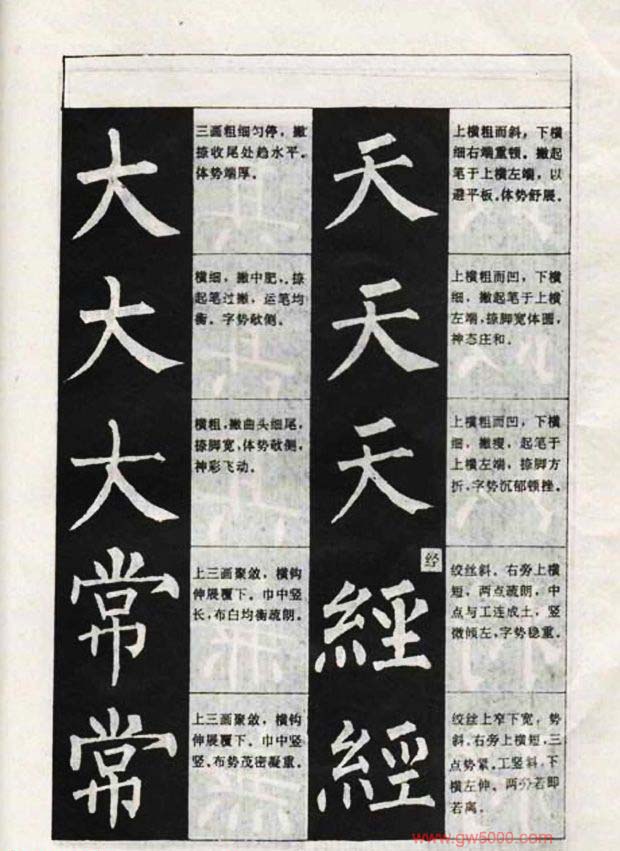 大
三画粗细匀停，撇
捺收尾处趋水平。
体势端厚。
大
横细，撇中肥，捺
起笔过撇，运笔均
衡。字势欹侧。
大
横粗，撇曲头细尾，
捺脚宽，体势欹侧，
神彩飞动。
常
上三画聚敛，横钩
伸展覆下。巾中竖
长，布白均衡疏朗。
常
上三画聚敛，横钩
伸展覆下。巾中竖
竖、布势茂密凝重。
天
上横粗而斜，下横
细右端重顿。撇起
笔于上横左端，以
避平板。体势舒展。
天
上横粗而凹，下横
细，撇起笔于上横
左端，捺脚宽体圆，
神态庄和。
天
上横粗而凹，下横
细，撇瘦，起笔于
上横左端，捺脚方
折，字势沉郁顿挫。
经
經
绞丝斜。右旁上横
短，两点疏朗，中
点与工连成土，竖
微倾左，字势稳重。
經
绞丝上窄下宽，势
斜。右旁上横短，三
点势紧。工竖斜，下
横左伸。两分若即
若离。
www.gw5000.com